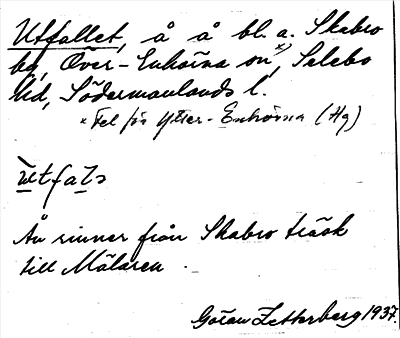 Utfallet, å å bl. a. Skabro
by, Över-Enhörna sn*), Selebo
hd, Södermanlands l.
* Fel för Ytter-Enhörna (Hg)
utfals
Ån rinner från Skabro träsk
till Mälaren.
Götan Zetterberg 1937.